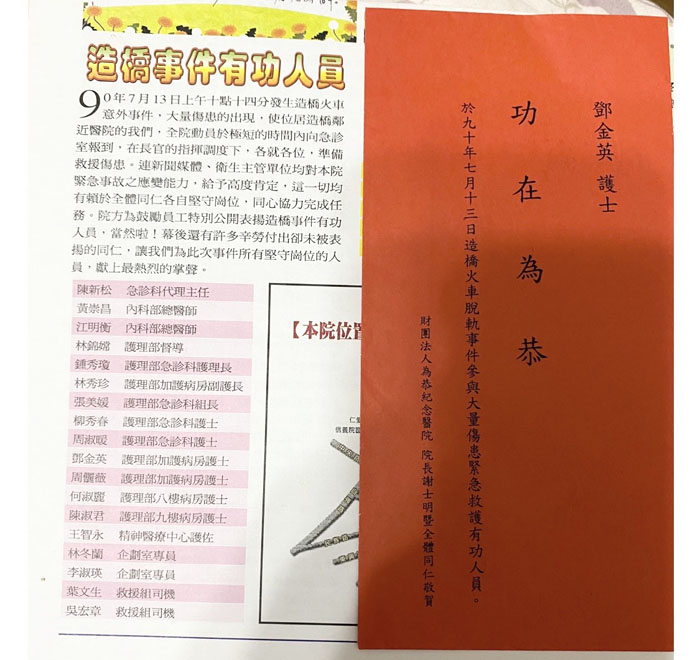 造橋事件有功人員
90年7月13日上午十點十四分發生造橋火車
意外事件，大量傷患的出現，使位居造橋鄰
近醫院的我們，全院動員於極短的時間內向急診
室報到，在長官的指揮調度下，各就各位，準備
救援傷患。連新聞媒體、衛生主管單位均對本院
緊急事故之應變能力，給予高度肯定，這一切均
有賴於全體同仁各自堅守崗位，同心協力完成任
務。院方為鼓勵員工特別公開表揚造橋事件有功
人員，當然啦！幕後還有許多辛勞付出卻未被表
揚的同仁，讓我們為此次事件所有堅守崗位的人
員，獻上最熱烈的掌聲。
陳新松 急診科代理主任
黃崇昌 內科部總醫師
江明衡 內科部總醫師
林錦嫦 護理部督導
鍾秀瓊 護理部急診科護理長
林秀珍 護理部加護病房副護長
張美媛 護理部急診科組長
柳秀春 護理部急診科護士
周淑暖 護理部急診科護士
鄧金英 護理部加護病房護士
周麗薇 護理部加護病房護士
何淑麗 護理部八樓病房護士
陳淑君 護理部九樓病房護士
王智永 精神醫療中心護佐
林冬蘭 企劃室專員
李淑瑛 企劃室專員
葉文生 救援組司機
吳宏章 救援組司機
【本院位置
鄧金英 護士
功在為恭
於九十年七月十三日造橋火車脫軌事件參與大量傷患緊急救護有功人員。
財團法人為恭紀念醫院 院長謝士明暨全體同仁敬賀